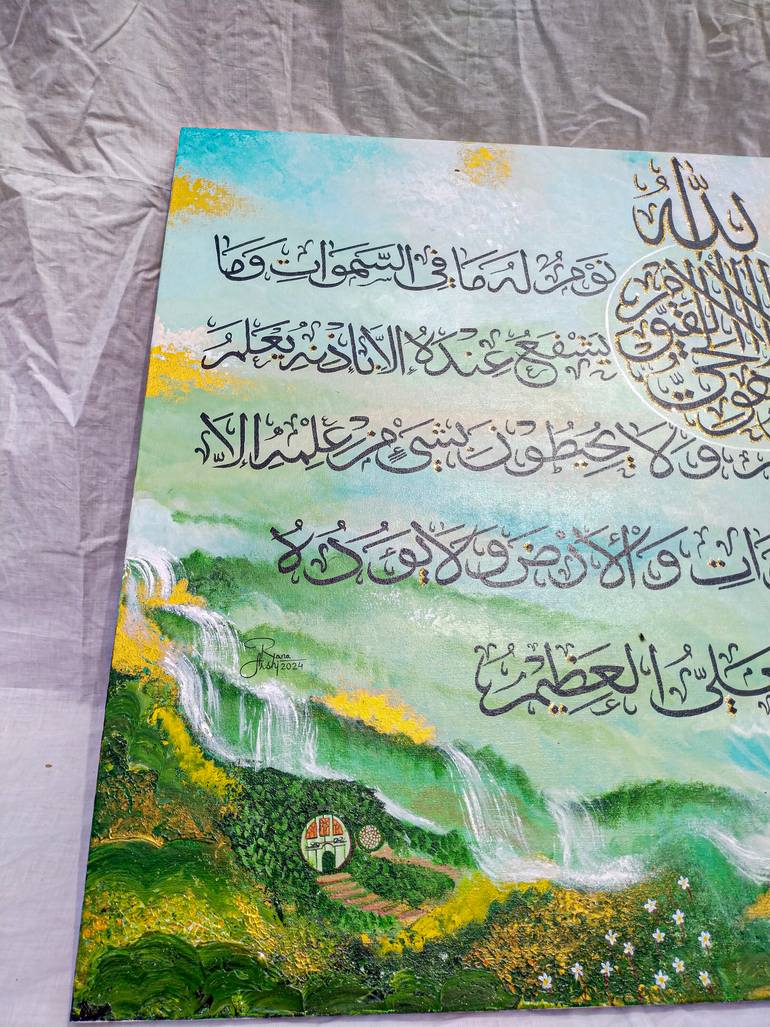 اللّٰهُ
إلا هو الحيّ القيّوم
نَوْمٌ لَهُ مَا فِي السَّمَوَاتِ وَمَا
يَشْفَعُ عِنْدَهُ إِلاَّ بِإِذْنِهِ يَعْلَمُ
وَلَا يُحِيطُونَ بِشَيْءٍ مِنْ عِلْمِهِ إِلاَّ
وَالْأَرْضَ وَلَا يَؤُدُهُ
عَلِيُّ الْعَظِيمُ
2024